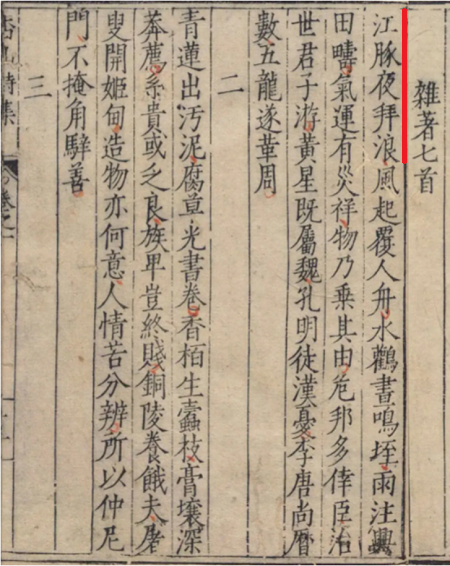 雜著七首
江豚夜拜浪風起覆人舟水鸛晝鳴垤雨注與
田疇氣運有災祥物乃乗其由危邦多倖臣治
世君子游黄星既屬魏孔明徒漢憂李唐尚曆
數五龍遂華周
二
青蓮出汚泥腐草光書卷香栢生蠹枝膏壤深
莽薦系貴或乏良族卑豈終賤銅陵養餓夫屠
叟開姬甸造物亦何意人情苦分辨所以仲尼
門不掩角騂善
三
詩集 卷之一